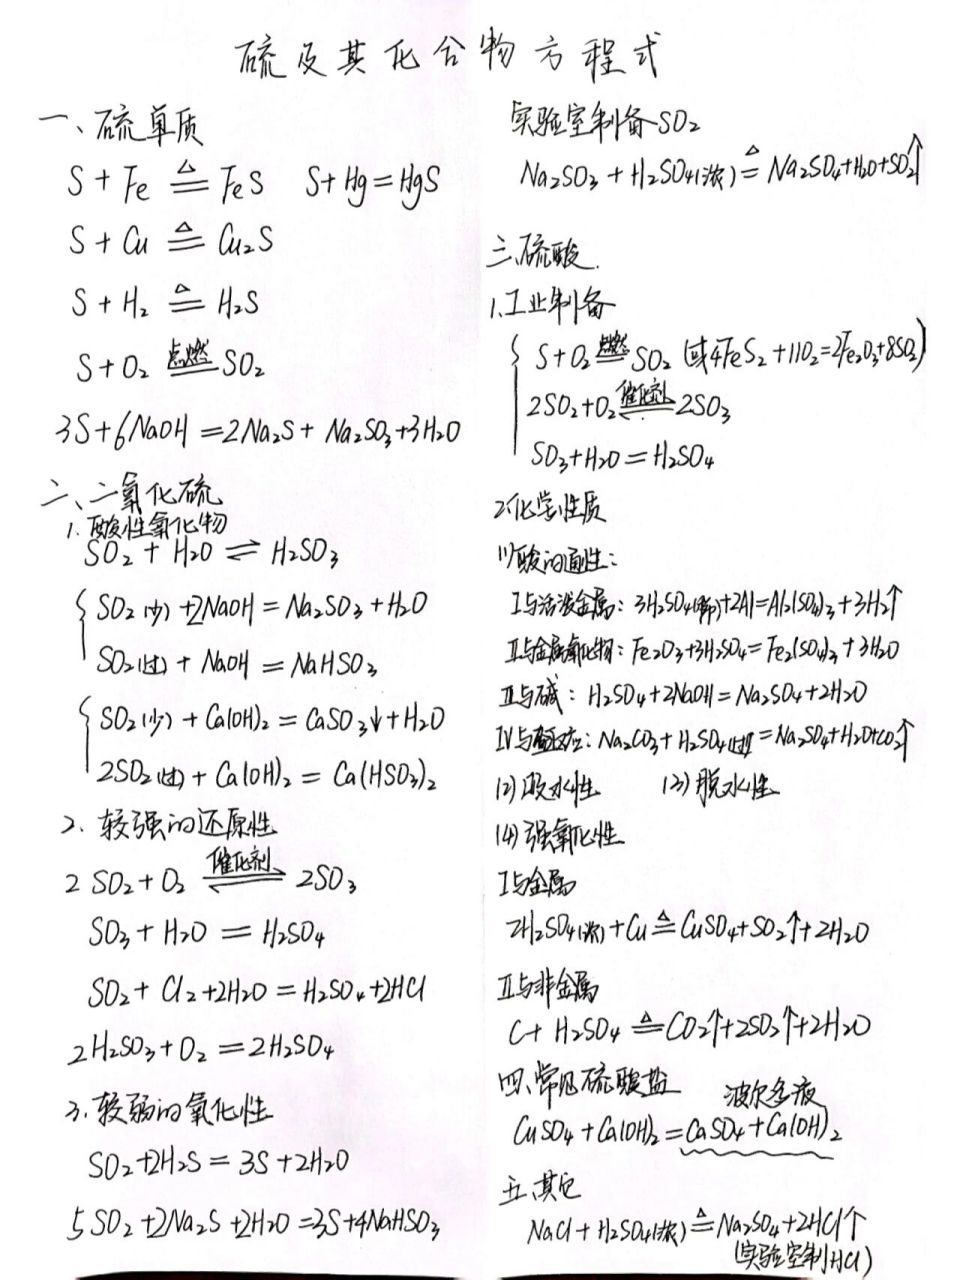 硫及其化合物方程式
一、硫单质
S + Fe ≜ FeS   S + Hg = HgS
S + Cu ≜ Cu₂S
S + H₂ ≜ H₂S
S + O₂ 点燃══ SO₂
3S + 6NaOH = 2Na₂S + Na₂SO₃ + 3H₂O
二、二氧化硫
1. 酸性氧化物
SO₂ + H₂O ⇌ H₂SO₃
SO₂(少) + 2NaOH = Na₂SO₃ + H₂O
SO₂(过) + NaOH = NaHSO₃
SO₂(少) + Ca(OH)₂ = CaSO₃↓ + H₂O
2SO₂(过) + Ca(OH)₂ = Ca(HSO₃)₂
2. 较强的还原性
2SO₂ + O₂ 催化剂⇌ 2SO₃
SO₃ + H₂O = H₂SO₄
SO₂ + Cl₂ + 2H₂O = H₂SO₄ + 2HCl
2H₂SO₃ + O₂ = 2H₂SO₄
3. 较弱的氧化性
SO₂ + 2H₂S = 3S + 2H₂O
5SO₂ + 2Na₂S + 2H₂O = 3S + 4NaHSO₃
实验室制备SO₂
Na₂SO₃ + H₂SO₄(浓) ≜ Na₂SO₄ + H₂O + SO₂↑
三、硫酸.
1. 工业制备
S + O₂ 点燃══ SO₂ (或4FeS₂ + 11O₂ = 2Fe₂O₃ + 8SO₂)
2SO₂ + O₂ 催化剂⇌ 2SO₃
SO₃ + H₂O = H₂SO₄
2. 化学性质
(1) 酸的通性：
I 与活泼金属：3H₂SO₄(稀) + 2Al = Al₂(SO₄)₃ + 3H₂↑
II 与金属氧化物：Fe₂O₃ + 3H₂SO₄ = Fe₂(SO₄)₃ + 3H₂O
II 与碱：H₂SO₄ + 2NaOH = Na₂SO₄ + 2H₂O
IV 与盐反应：Na₂CO₃ + H₂SO₄(过) = Na₂SO₄ + H₂O + CO₂↑
(2) 吸水性   (3) 脱水性
(4) 强氧化性
I 与金属
2H₂SO₄(浓) + Cu ≜ CuSO₄ + SO₂↑ + 2H₂O
II 与非金属
C + H₂SO₄ ≜ CO₂↑ + 2SO₂↑ + 2H₂O
四、常见硫酸盐   波尔多液
CuSO₄ + Ca(OH)₂ = CaSO₄ + Ca(OH)₂
五、其它
NaCl + H₂SO₄(浓) ≜ Na₂SO₄ + 2HCl↑
(实验室制HCl)